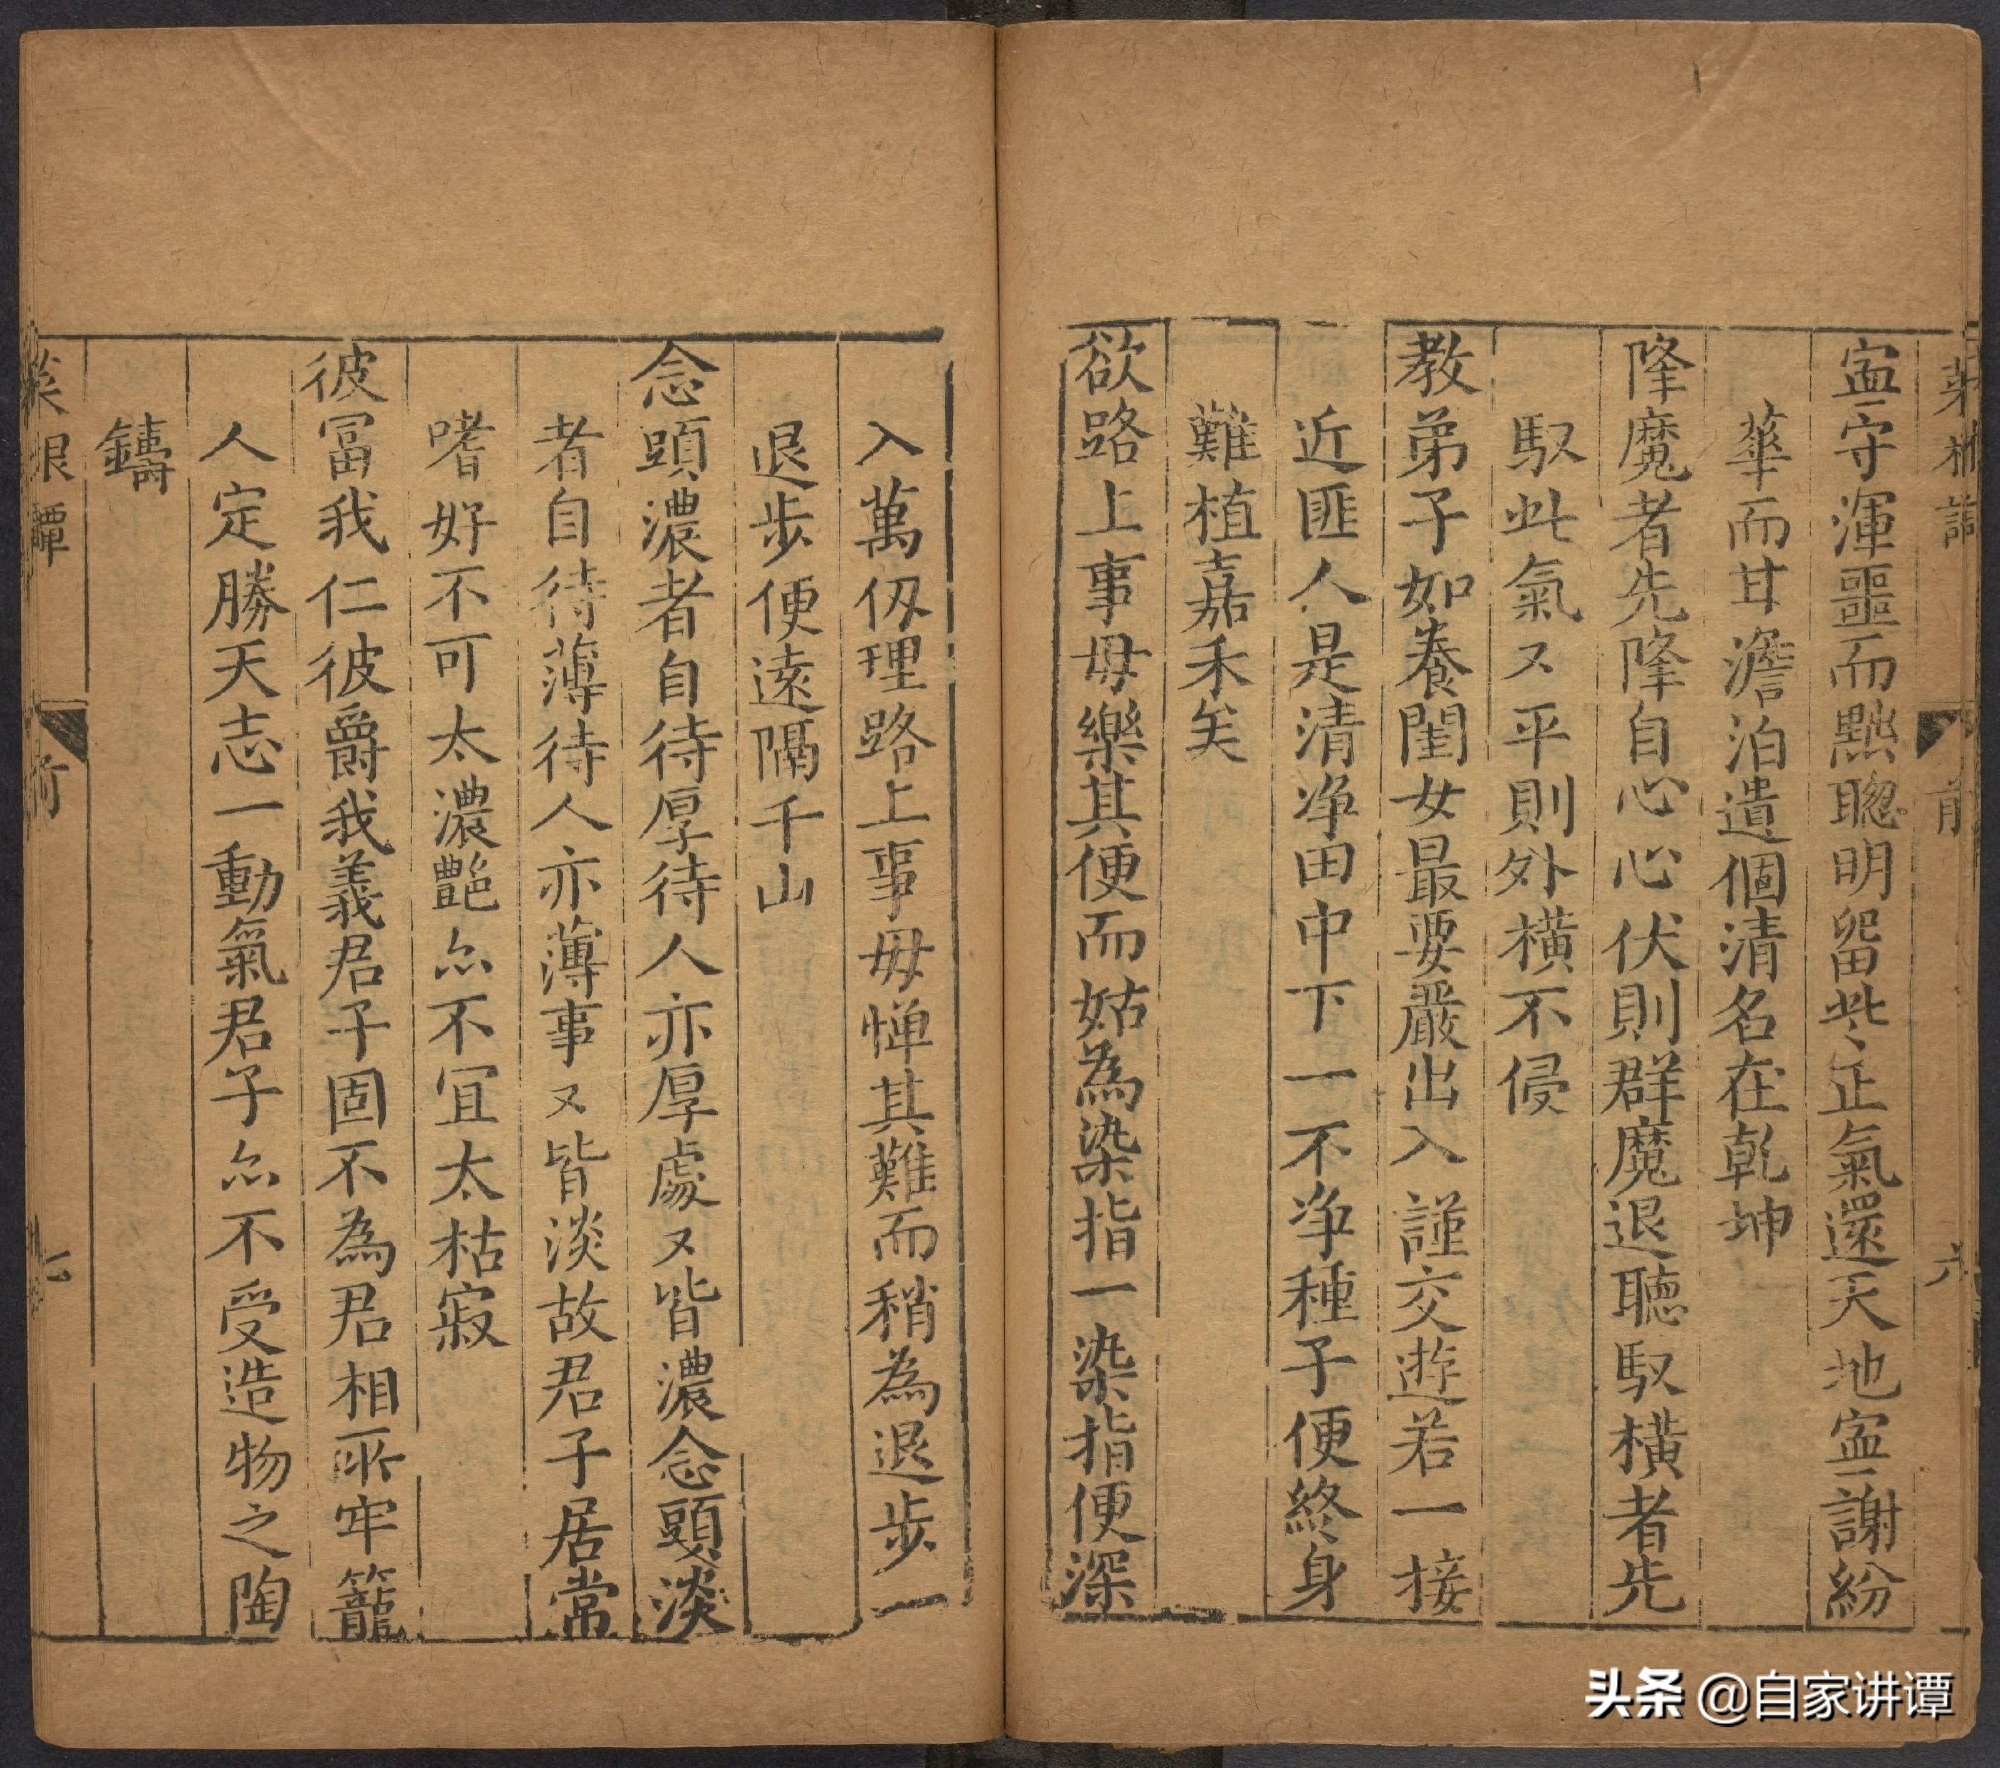 菜根譚 前 六
寍守渾噩而黜聰明留些正氣還天地寍謝紛
華而甘澹泊遺個清名在乾坤
降魔者先降自心心伏則群魔退聽馭橫者先
馭此氣又平則外橫不侵
教弟子如養閨女最要嚴出入謹交遊若一接
近匪人是清净田中下一不净種子便終身
難植嘉禾矣
欲路上事毋樂其便而姑為染指一染指便深
入萬仭理路上事毋憚其難而稍為退步一
退步便遠隔千山
念頭濃者自待厚待人亦厚處又皆濃念頭淡
者自待薄待人亦薄事又皆淡故君子居常
嗜好不可太濃艷亦不宜太枯寂
彼富我仁彼爵我義君子固不為君相所牢籠
人定勝天志一動氣君子亦不受造物之陶
鑄
菜根譚 前 七
头条 @自家讲谭